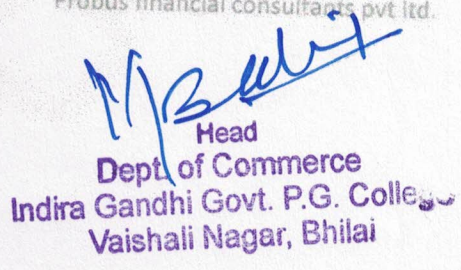 Probus financial consultants pvt ltd.
Head
Dept. of Commerce
Indira Gandhi Govt. P.G. College
Vaishali Nagar, Bhilai